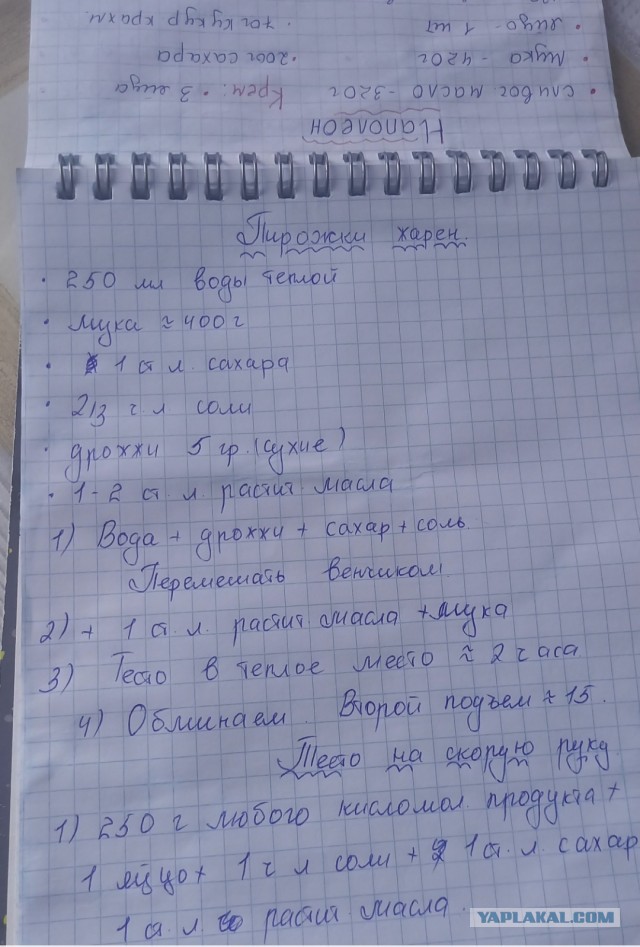 Наполеон
• сливоч масло - 320г Крем: • 3 яйца
• мука - 420г • 200г сахара
• яйцо - 1 шт • 70г кукур крахм.
Пирожки жарен.
• 250 мл воды теплой
• мука ≈ 400 г
• 1 ст л. сахара
• 2/3 ч л соли
• дрожжи 5 гр. (сухие)
• 1-2 ст. л. растит масла
1) Вода + дрожжи + сахар + соль.
Перемешать венчиком.
2) + 1 ст. л. растит масла + мука
3) Тесто в теплое место ≈ 2 часа
4) Обминаем. Второй подъем ≈ 15.
Тесто на скорую руку
1) 250 г любого кисломол. продукта +
1 яйцо + 1 ч л соли + 1 ст. л. сахар
1 ст. л. растит масла.
YAPLAKAL.COM